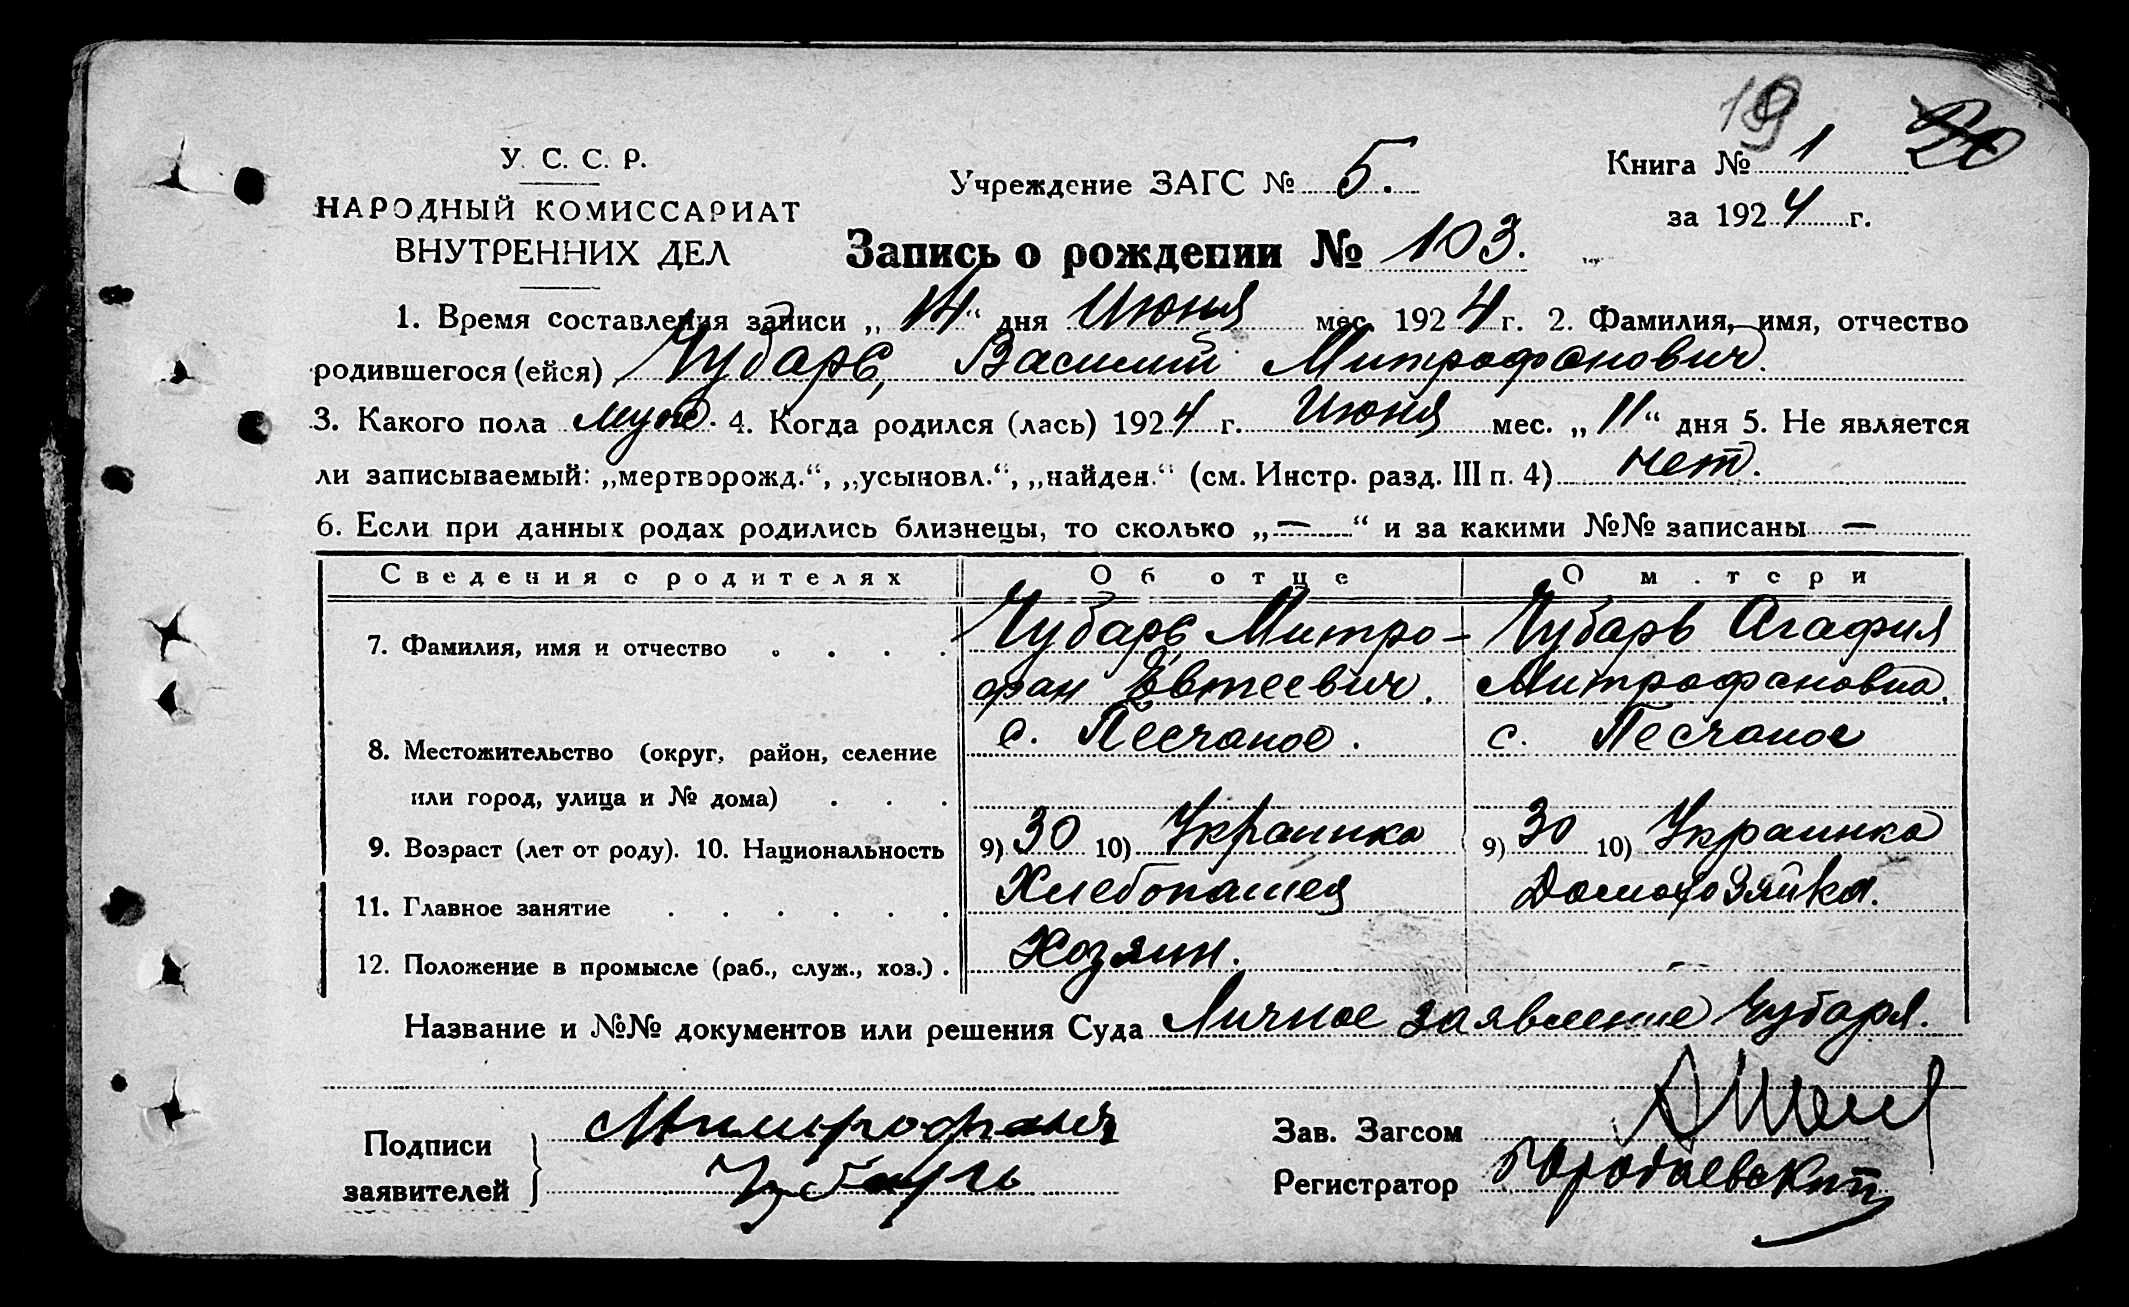 19 20
У. С. С. Р.
НАРОДНЫЙ КОМИССАРИАТ
ВНУТРЕННИХ ДЕЛ
Учреждение ЗАГС № 5.
Книга № 1
за 1924 г.
Запись о рождении № 103.
1. Время составления записи „14“ дня Июня мес. 1924 г. 2. Фамилия, имя, отчество
родившегося (ейся) Чубарь, Василий Митрофанович.
3. Какого пола муж. 4. Когда родился (лась) 1924 г. Июня мес. „11“ дня 5. Не является
ли записываемый: „мертворожд.“, „усыновл.“, „найден.“ (см. Инстр. разд. III п. 4) нет.
6. Если при данных родах родились близнецы, то сколько „—“ и за какими №№ записаны —
Сведения о родителях Об отце О м.тери
7. Фамилия, имя и отчество . . . . Чубарь, Митро- Чубарь Агафия
фан Евтеевич. Митрофановна.
8. Местожительство (округ, район, селение с. Песчаное. с. Песчаное
или город, улица и № дома) . . .
9. Возраст (лет от роду). 10. Национальность 9) 30 10) Украинка 9) 30 10) Украинка
11. Главное занятие . . . . . . Хлебопашец Домохозяйка.
12. Положение в промысле (раб., служ., хоз.) . Хозяин. —
Название и №№ документов или решения Суда Личное заявление Чубаря.
Подписи заявителей Митрофан
Чубарь
Зав. Загсом
Регистратор